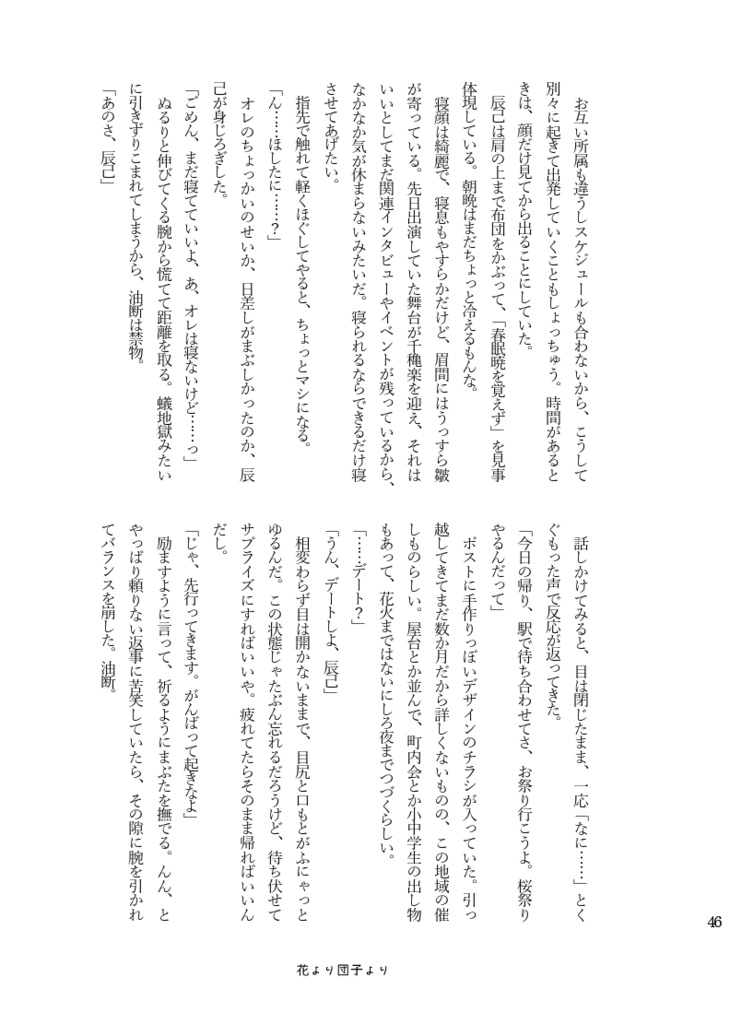 お互い所属も違うしスケジュールも合わないから、こうして
別々に起きて出発していくこともしょっちゅう。時間があると
きは、顔だけ見てから出ることにしていた。
辰己は肩の上まで布団をかぶって、「春眠暁を覚えず」を見事
体現している。朝晩はまだちょっと冷えるもんな。
寝顔は綺麗で、寝息もやすらかだけど、眉間にはうっすら皺
が寄っている。先日出演していた舞台が千穐楽を迎え、それは
いいとしてまだ関連インタビューやイベントが残っているから、
なかなか気が休まらないみたいだ。寝られるならできるだけ寝
させてあげたい。
指先で触れて軽くほぐしてやると、ちょっとマシになる。
「ん……ほしたに……？」
オレのちょっかいのせいか、日差しがまぶしかったのか、辰
己が身じろぎした。
「ごめん、まだ寝てていいよ、あ、オレは寝ないけど……っ」
ぬるりと伸びてくる腕から慌てて距離を取る。蟻地獄みたい
に引きずりこまれてしまうから、油断は禁物。
「あのさ、辰己」
話しかけてみると、目は閉じたまま、一応「なに……」とく
ぐもった声で反応が返ってきた。
「今日の帰り、駅で待ち合わせてさ、お祭り行こうよ。桜祭り
やるんだって」
ポストに手作りっぽいデザインのチラシが入っていた。引っ
越してきてまだ数か月だから詳しくないものの、この地域の催
しものらしい。屋台とか並んで、町内会とか小中学生の出し物
もあって、花火まではないにしろ夜までつづくらしい。
「……デート？」
「うん、デートしよ、辰己」
相変わらず目は開かないままで、目尻と口もとがふにゃっと
ゆるんだ。この状態じゃたぶん忘れるだろうけど、待ち伏せて
サプライズにすればいいや。疲れてたらそのまま帰ればいいん
だし。
「じゃ、先行ってきます。がんばって起きなよ」
励ますように言って、祈るようにまぶたを撫でる。んん、と
やっぱり頼りない返事に苦笑していたら、その隙に腕を引かれ
てバランスを崩した。油断。
46
花より団子より